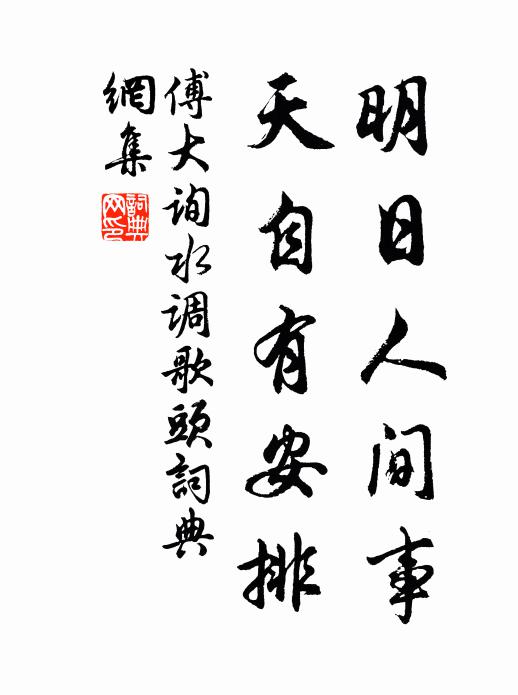 明日人间事
天自有安排
傅大询水调歌頭詞典
網集
詞典
网印